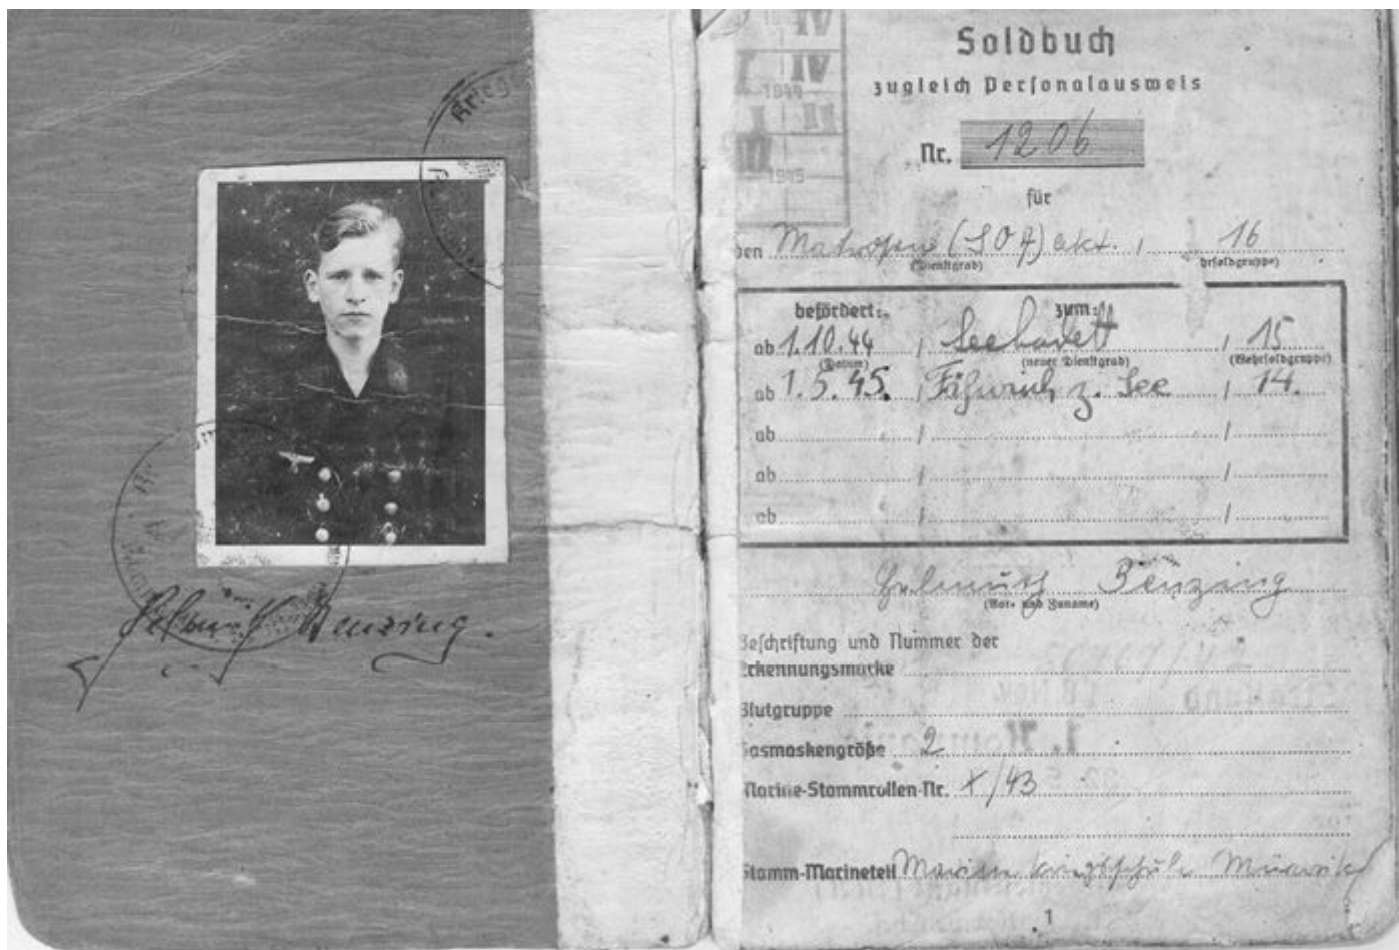 Kriegs
Helmuth Benzing.
IV
IV
1944
I II
III
1945
Soldbuch
zugleich Personalausweis
Nr. 1206
für
den Matrosen (SOA) akt. , 16
(Dienstgrad)
befördert: zum:
ab 1.10.44 / Seekadett / 15
(Datum) (neuer Dienstgrad) (Wehrsoldgruppe)
ab 1.5.45. / Fähnrich z. See / 14.
ab / /
ab / /
ab / /
Helmuth Benzing
(Vor- und Zuname)
Beschriftung und Nummer der
Erkennungsmarke
Blutgruppe
Gasmaskengröße 2
Marine-Stammrollen-Nr. X/43
Stamm-Marineteil Marinekriegsschule Mürwik
1